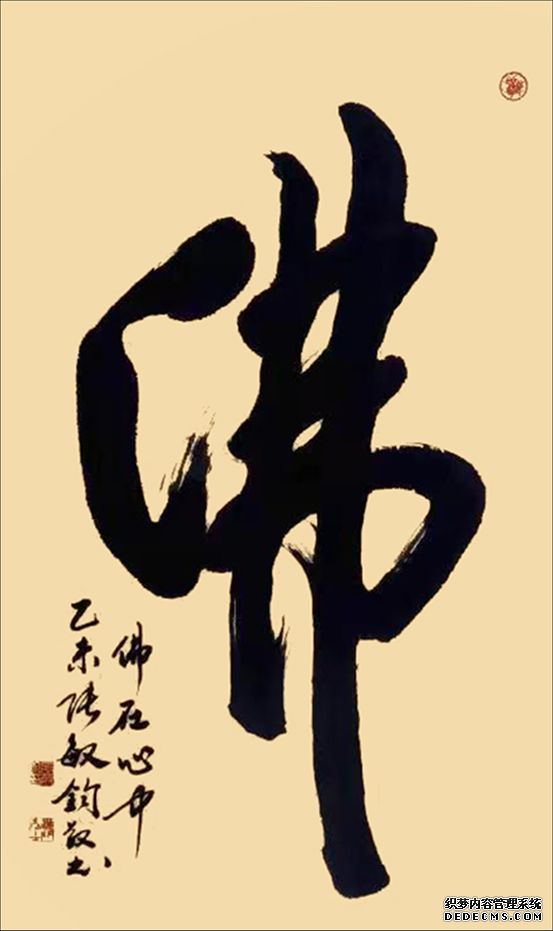 佛
佛在心中
乙未张敏钧敬书
织梦内容管理系统
DEDECMS.COM